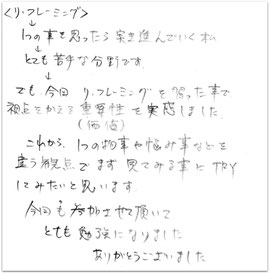 <リ・フレーミング>
↓
1つの事を思ったら突き進んでいく私
↓
とても苦手な分野です
↓
でも、今回 リ・フレーミングを習った事で
視点をかえる重要性を実感しました
(価値)
これから、1つの物事や悩み事などを
違う視点でまず見てみる事にTRY
してみたいと思います
今回も参加させて頂いて
とても勉強になりました
ありがとうございました